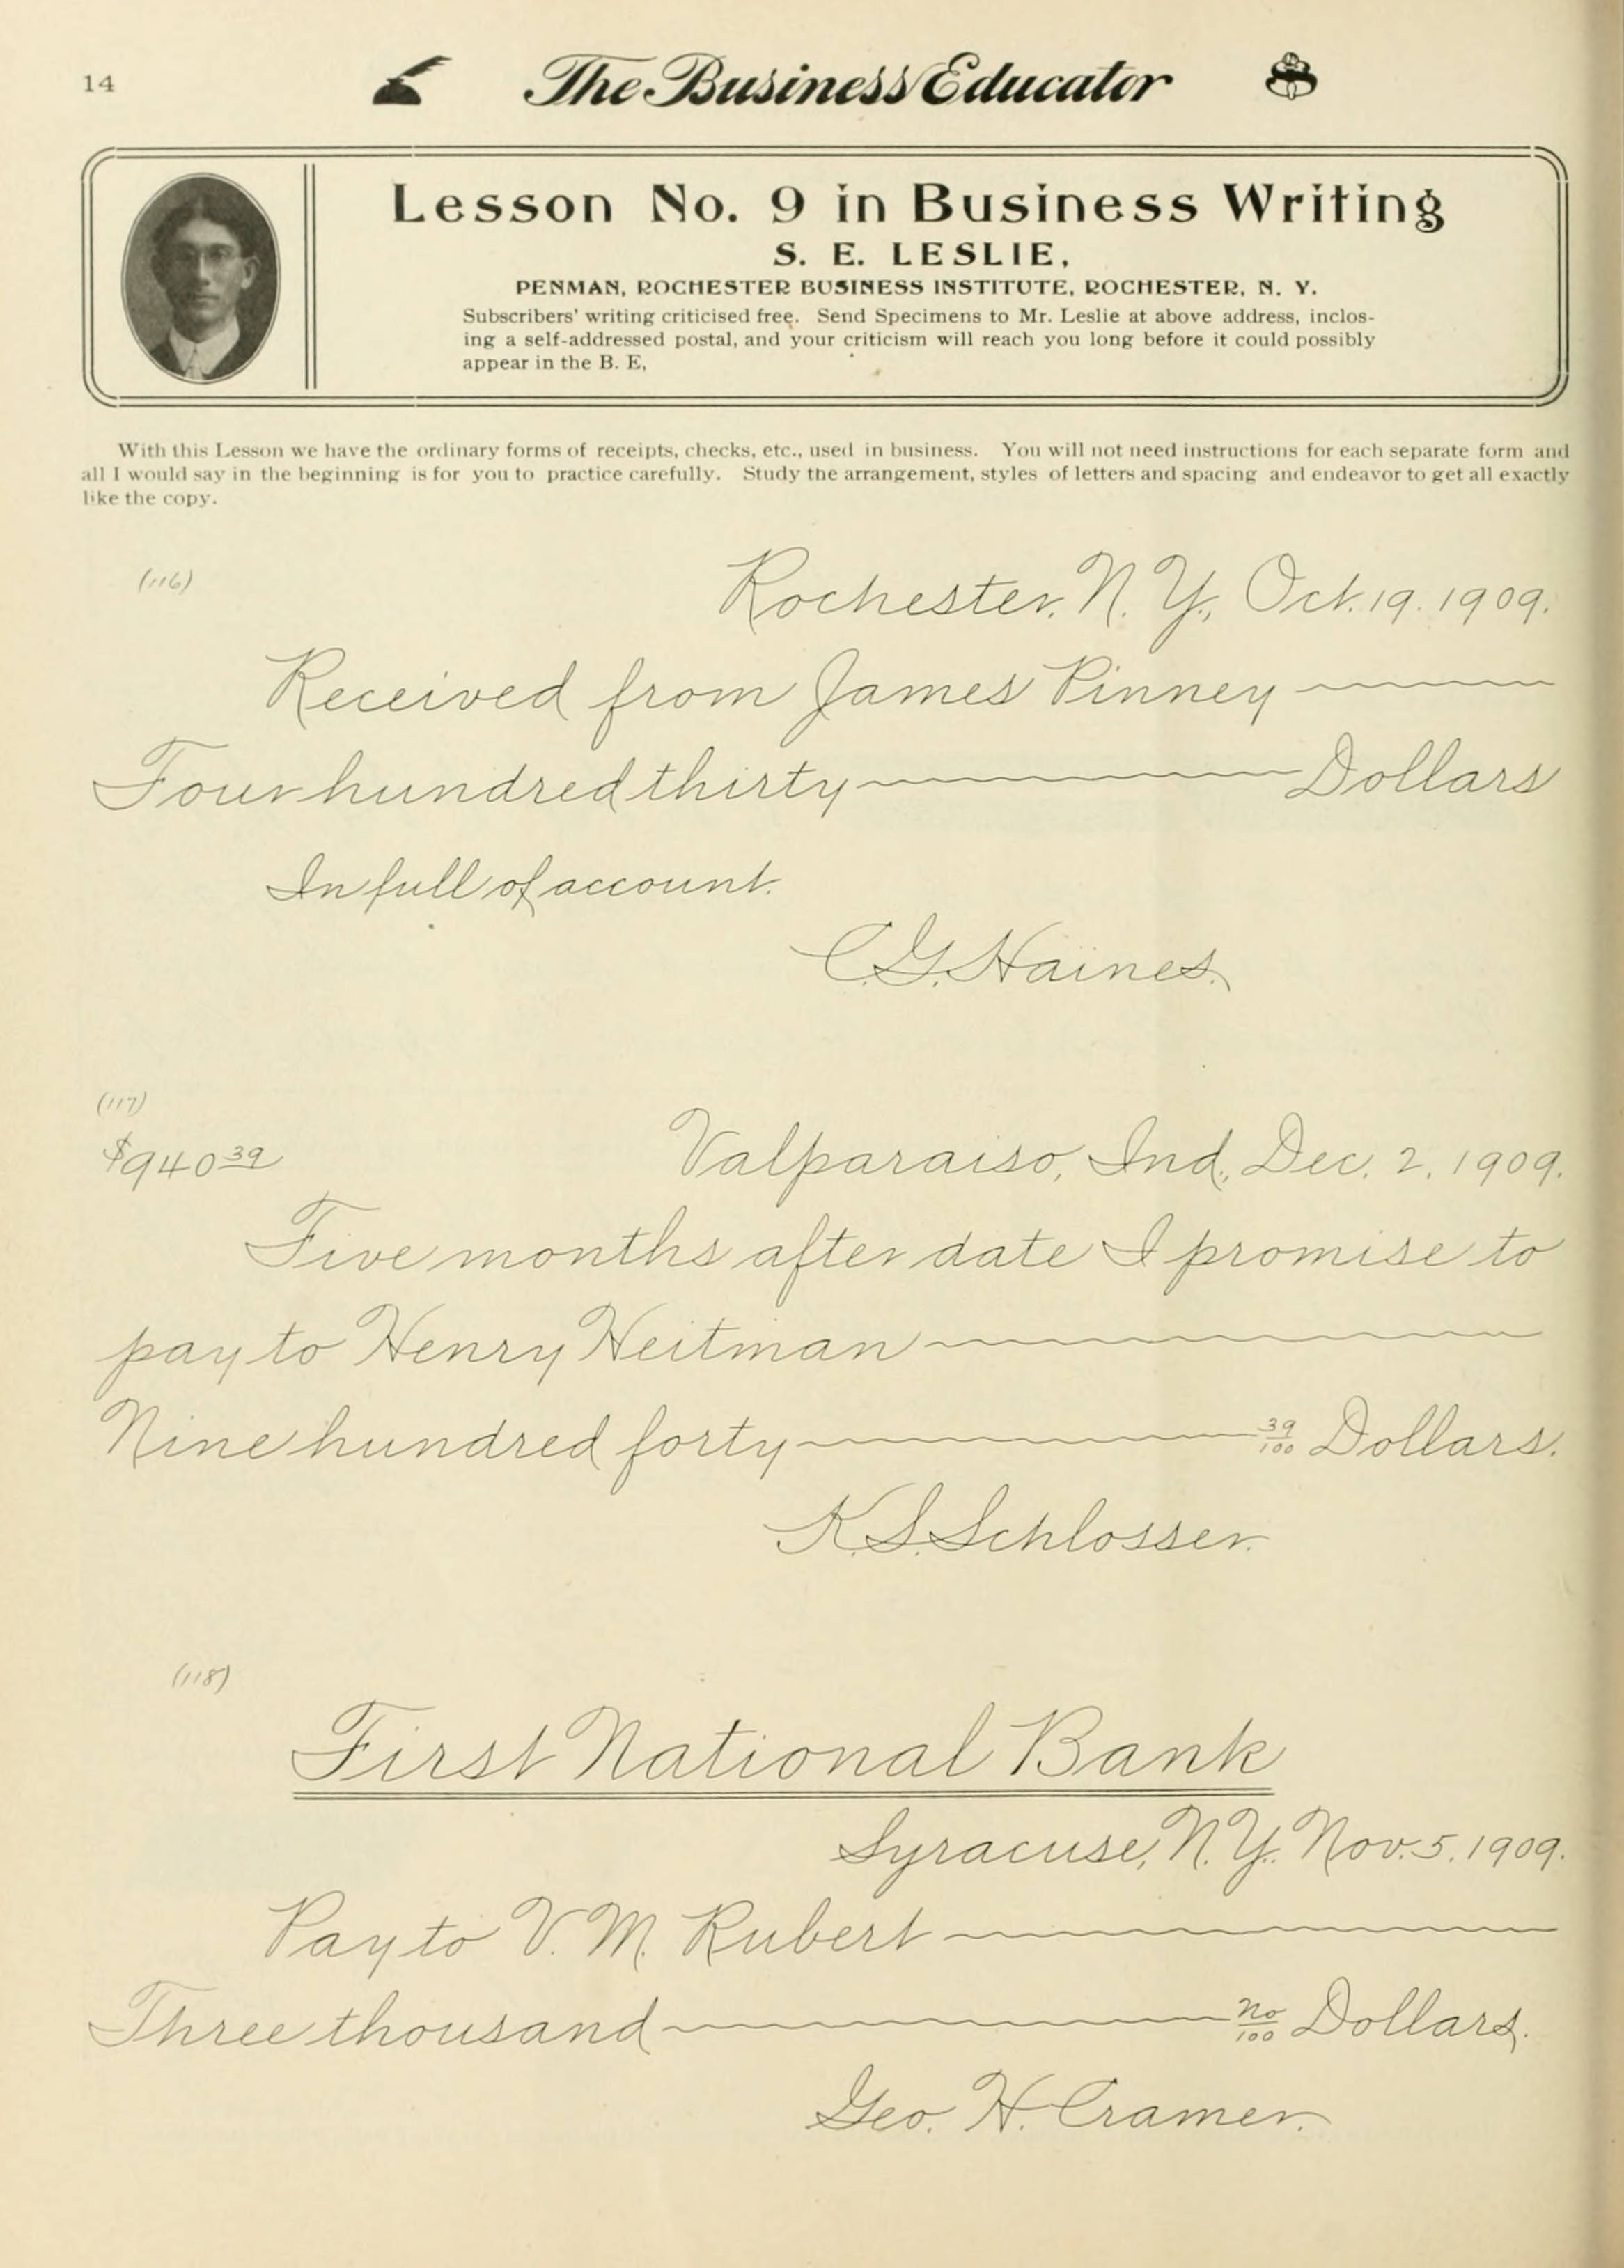 14
The Business Educator
Lesson No. 9 in Business Writing
S. E. LESLIE,
PENMAN, ROCHESTER BUSINESS INSTITUTE, ROCHESTER, N. Y.
Subscribers' writing criticised free. Send Specimens to Mr. Leslie at above address, inclos-
ing a self-addressed postal, and your criticism will reach you long before it could possibly
appear in the B. E,
With this Lesson we have the ordinary forms of receipts, checks, etc., used in business. You will not need instructions for each separate form and
all I would say in the beginning is for you to practice carefully. Study the arrangement, styles of letters and spacing and endeavor to get all exactly
like the copy.
(116)
Rochester, N. Y., Oct. 19. 1909.
Received from James Pinney
Four hundred thirty Dollars
In full of account.
C. G. Haines.
(117)
$940 39 Valparaiso, Ind., Dec. 2, 1909.
Five months after date I promise to
pay to Henry Heitman
Nine hundred forty 39/100 Dollars.
K. S. Schlosser.
(118)
First National Bank
Syracuse, N. Y. Nov. 5. 1909.
Pay to V. M. Rubert
Three thousand no/100 Dollars.
Geo. H. Cramer.